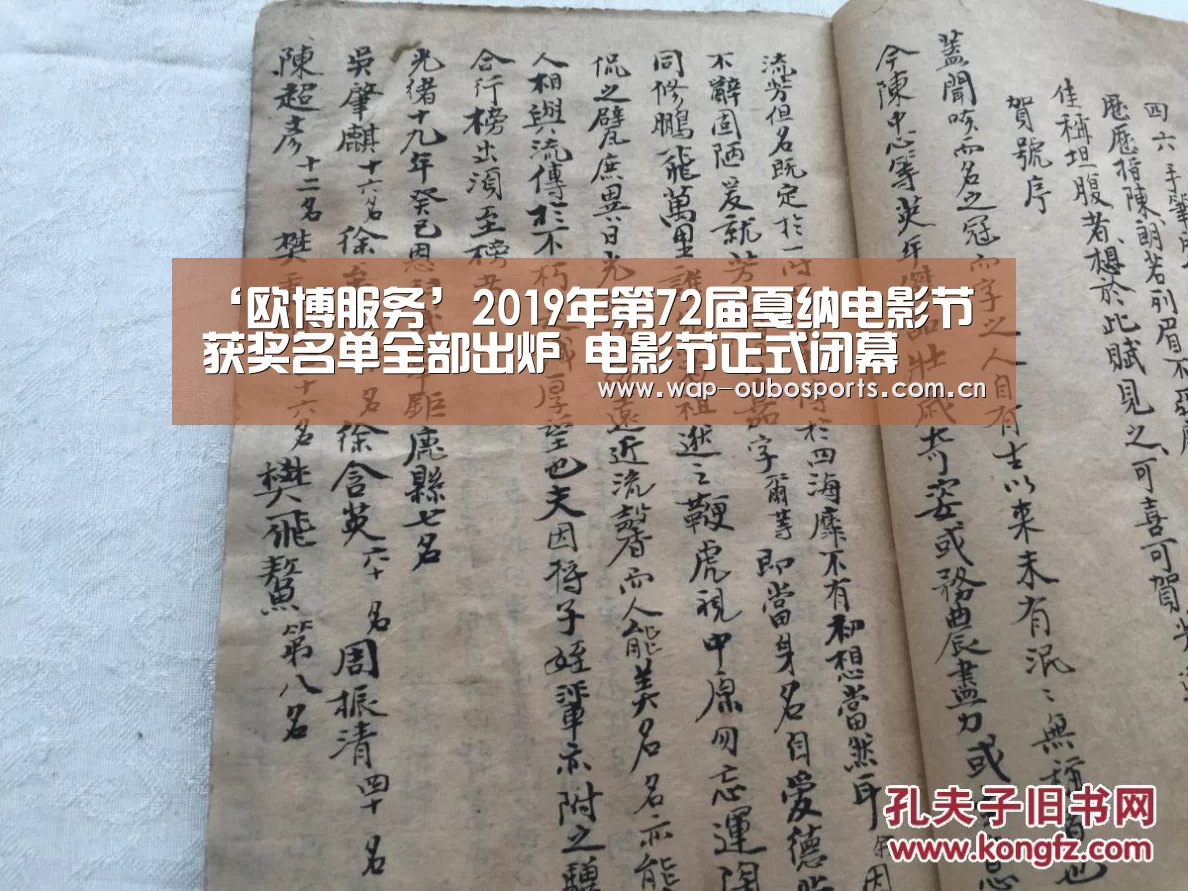 四六手筆
歷歷指陳朗若列眉不
佳稱坦腹者想於此賦見之可喜可賀
賀號序
蓋聞咳而名之冠而字之人自有生以來未有泯泯無稱
今陳中心等英年
壯歲
姿或務農盡力或
流芳但名既定於一
於四海靡不有初想當然耳
不辭固陋爰就芳
字爾等即當身名自愛德
同修鵬飛萬里
祖逖之鞭虎視中原勿忘運
侃之甓庶異日光
遠近流馨而人能美名名亦能
人相與流傳於不朽
厚望也夫因將子姪輩亦附之驥
合行榜出須至榜者
光緒十九年癸巳恩
鉅鹿縣七名
吳肇麒十六名徐
名徐含英六十名周振清四十名
陳超彥十二名樊
十六名樊飛鰲第八名
‘欧博服务’2019年第72届戛纳电影节
获奖名单全部出炉 电影节正式闭幕
www.wap-oubosports.com.cn
孔夫子旧书网
www.kongfz.com